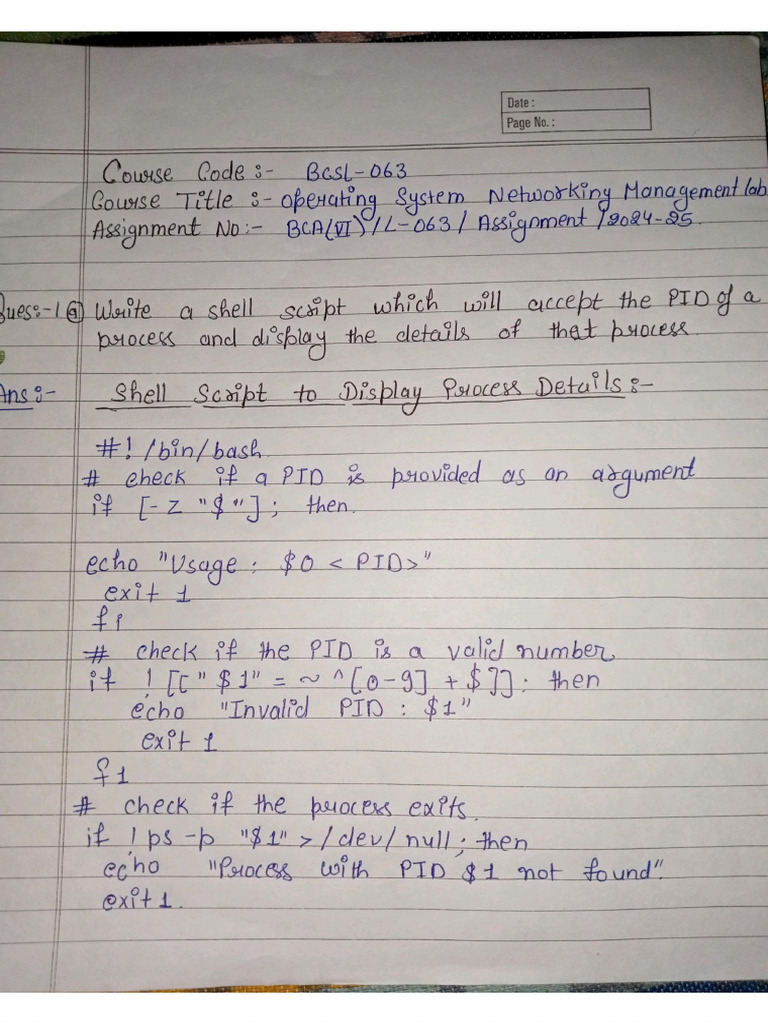 Date :
Page No. :
Course Code :- BCSL-063
Course Title :- Operating System Networking Management lab
Assignment No :- BCA(VI)/L-063/Assignment/2024-25.
Ques:-1 (a) Write a shell script which will accept the PID of a
process and display the details of that process.
Ans :- Shell Script to Display Process Details :-
#! /bin/bash
# check if a PID is provided as an argument
if [-z "$"]; then.
echo "Usage : $0 < PID>"
exit 1
fi
# check if the PID is a valid number
if ! [[ "$1" = ~ ^[0-9] + $ ]]: then
echo "Invalid PID : $1"
exit 1
f1
# check if the process exits.
if ! ps -p "$1" > /dev/null; then
echo "Process with PID $1 not found".
exit 1.